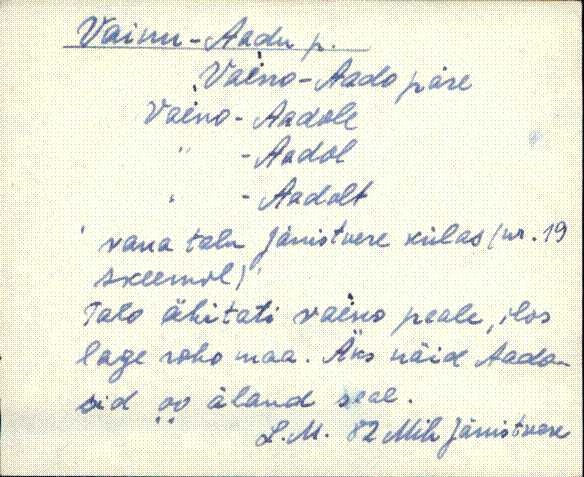 Vainu-Aadu p.
Vaino-Aado päre
Vaino-Aadole
" -Aadol
" -Aadolt
' vana talu Jänistvere külas (nr. 19
skeemil)'
Talo ähitati vaino peale, ilos
lage roho maa. Äks näid Aado-
sid oo äland seal.
L.M. 82 Mih Jänistvere